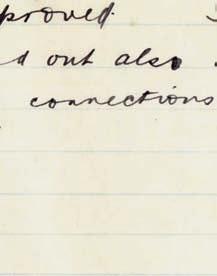 proved.
d out also
connections